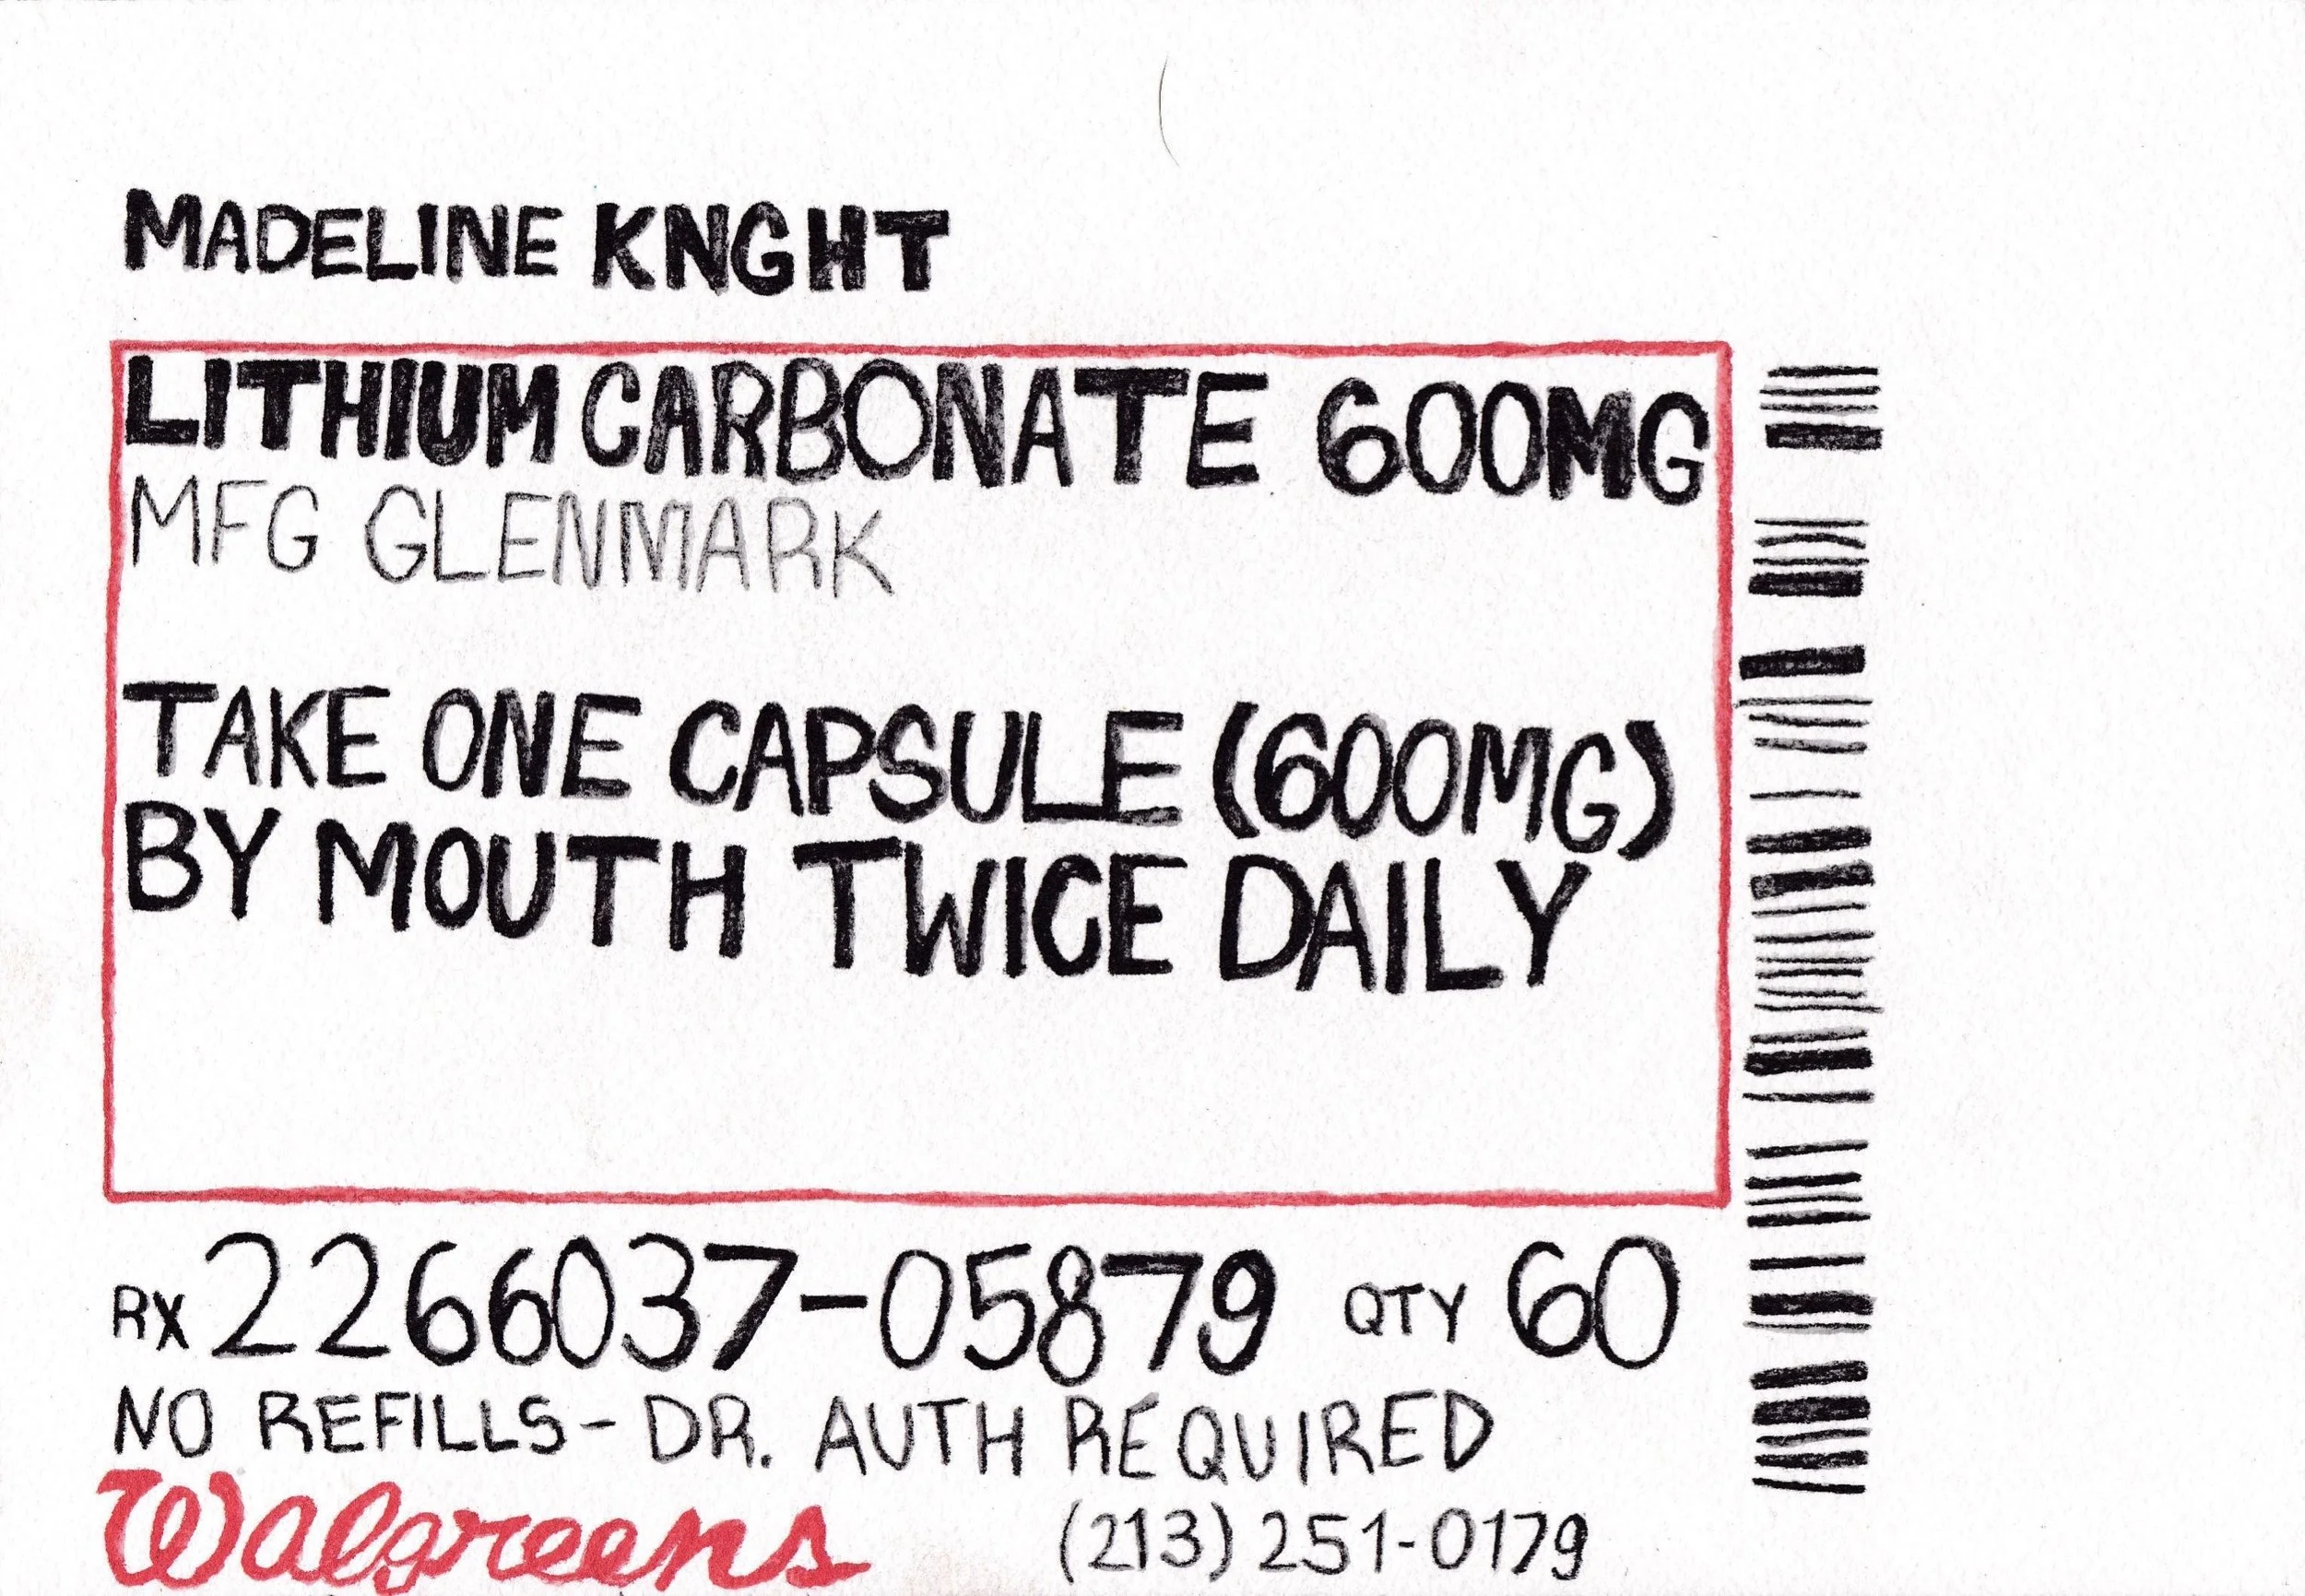 MADELINE KNGHT
LITHIUM CARBONATE 600MG
MFG GLENMARK
TAKE ONE CAPSULE (600MG)
BY MOUTH TWICE DAILY
RX 2266037-05879 QTY 60
NO REFILLS - DR. AUTH REQUIRED
Walgreens (213) 251-0179